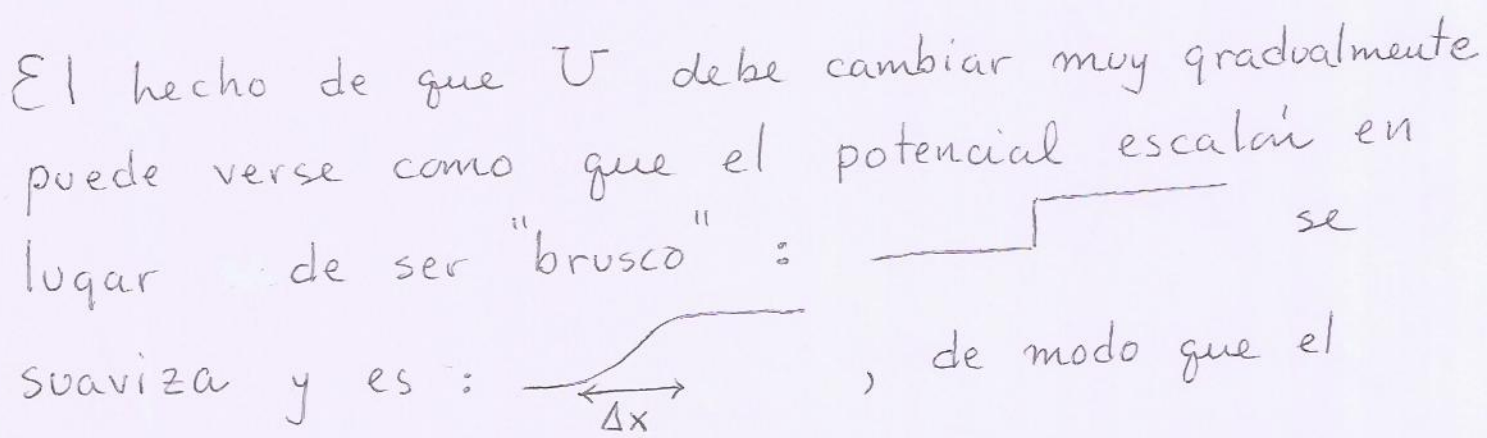 El hecho de que U debe cambiar muy gradualmente
puede verse como que el potencial escalón en
lugar de ser "brusco" : se
suaviza y es : , de modo que el
Δx